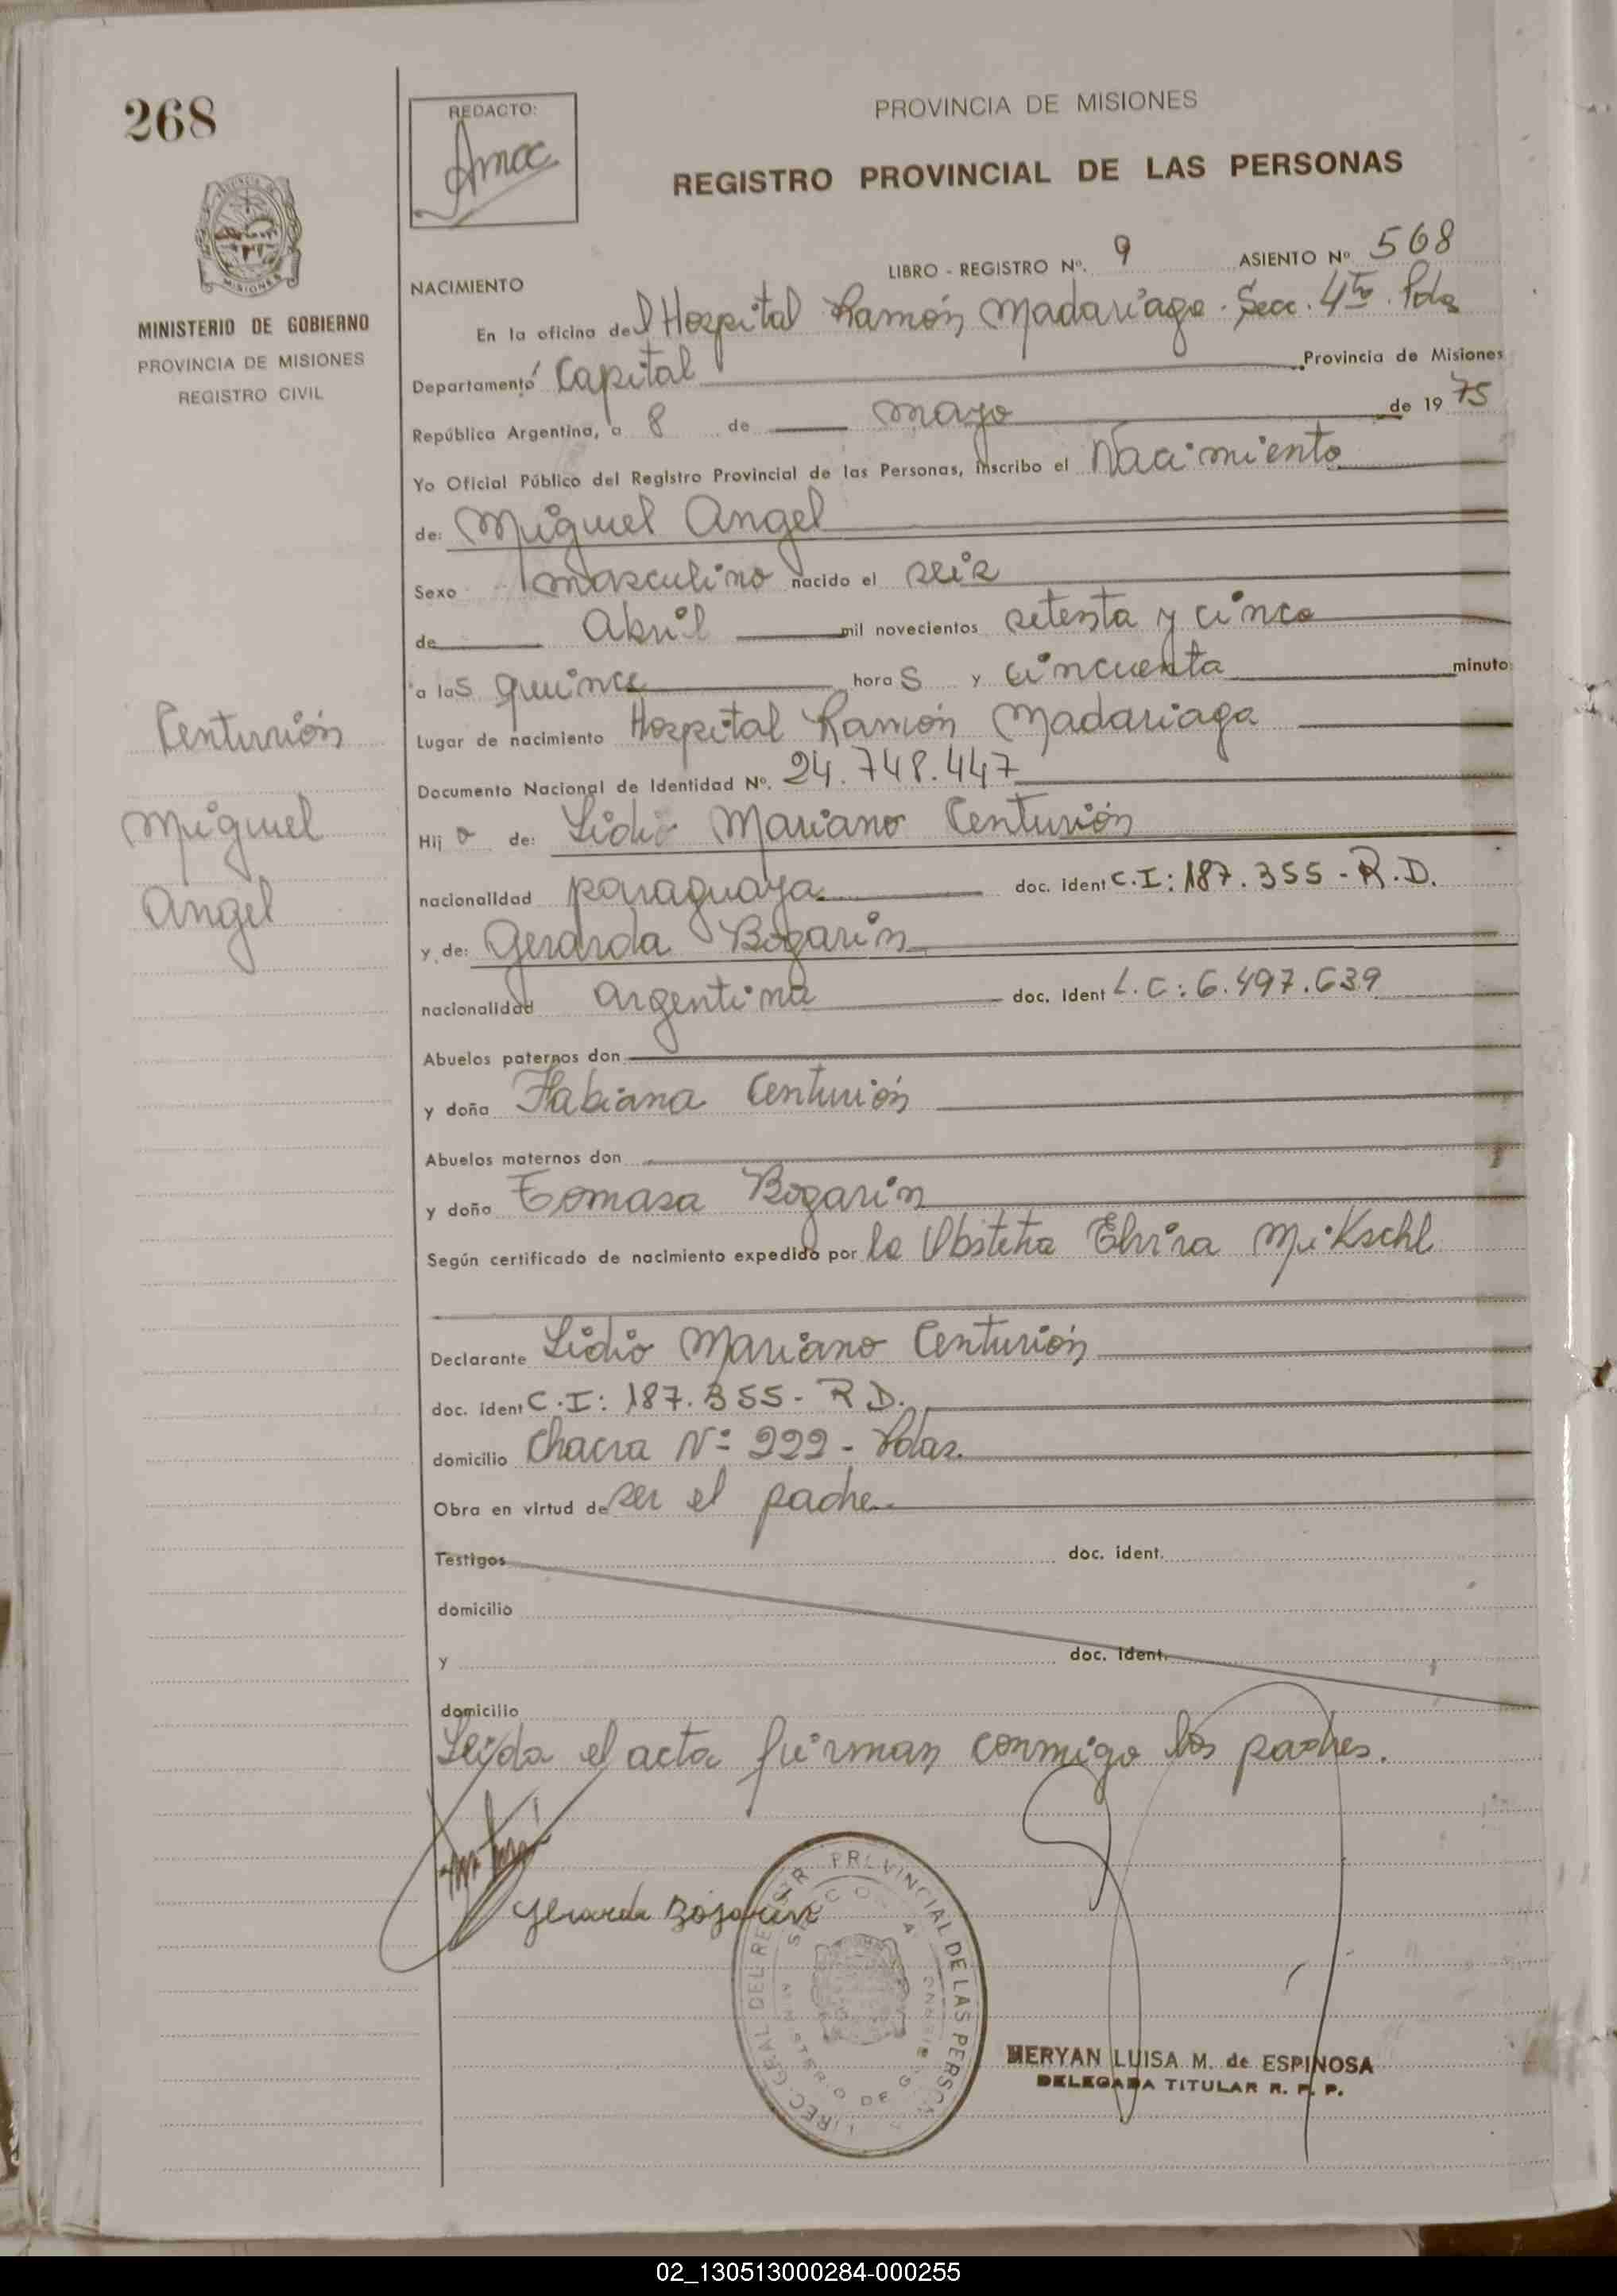 268
REDACTO:
PROVINCIA DE MISIONES
REGISTRO PROVINCIAL DE LAS PERSONAS
MISIONES
MINISTERIO DE GOBIERNO
PROVINCIA DE MISIONES
REGISTRO CIVIL
LIBRO - REGISTRO Nº. 9 ASIENTO Nº 568
NACIMIENTO
En la oficina del Hospital Ramón Madariaga - Secc. 4ta. Pdas
Departamento Capital Provincia de Misiones
República Argentina, a 8 de mayo de 1975
Yo Oficial Público del Registro Provincial de las Personas, inscribo el Nacimiento
de: Miguel Angel
Sexo masculino nacido el seis
de Abril mil novecientos setenta y cinco
a las quince horas y cincuenta minuto
Lugar de nacimiento Hospital Ramón Madariaga
Documento Nacional de Identidad Nº. 24.748.447
Hijo de: Lidio Mariano Centurión
nacionalidad paraguaya doc. ident C.I: 187.355 - R.D.
y de: Gerarda Bogarin
nacionalidad argentina doc. ident L.C: 6.497.639
Abuelos paternos don
y doña Fabiana Centurión
Abuelos maternos don
y doña Tomasa Bogarin
Según certificado de nacimiento expedido por la Obstetra Elvira Mikschl
Declarante Lidio Mariano Centurión
doc. ident C.I: 187.355 - R D.
domicilio Chacra Nº 222 - Pdas.
Obra en virtud de ser el padre
Testigos doc. ident.
domicilio
y doc. ident.
domicilio
Leída el acta firman conmigo los padres.
Centurión
Miguel
Angel
Gerarda Bogarin
DIREC. GRAL DEL REGISTR. PROVINCIAL DE LAS PERSONAS
MINISTERIO DE GO
MERYAN LUISA M. de ESPINOSA
DELEGADA TITULAR R. P. P.
02_130513000284-000255